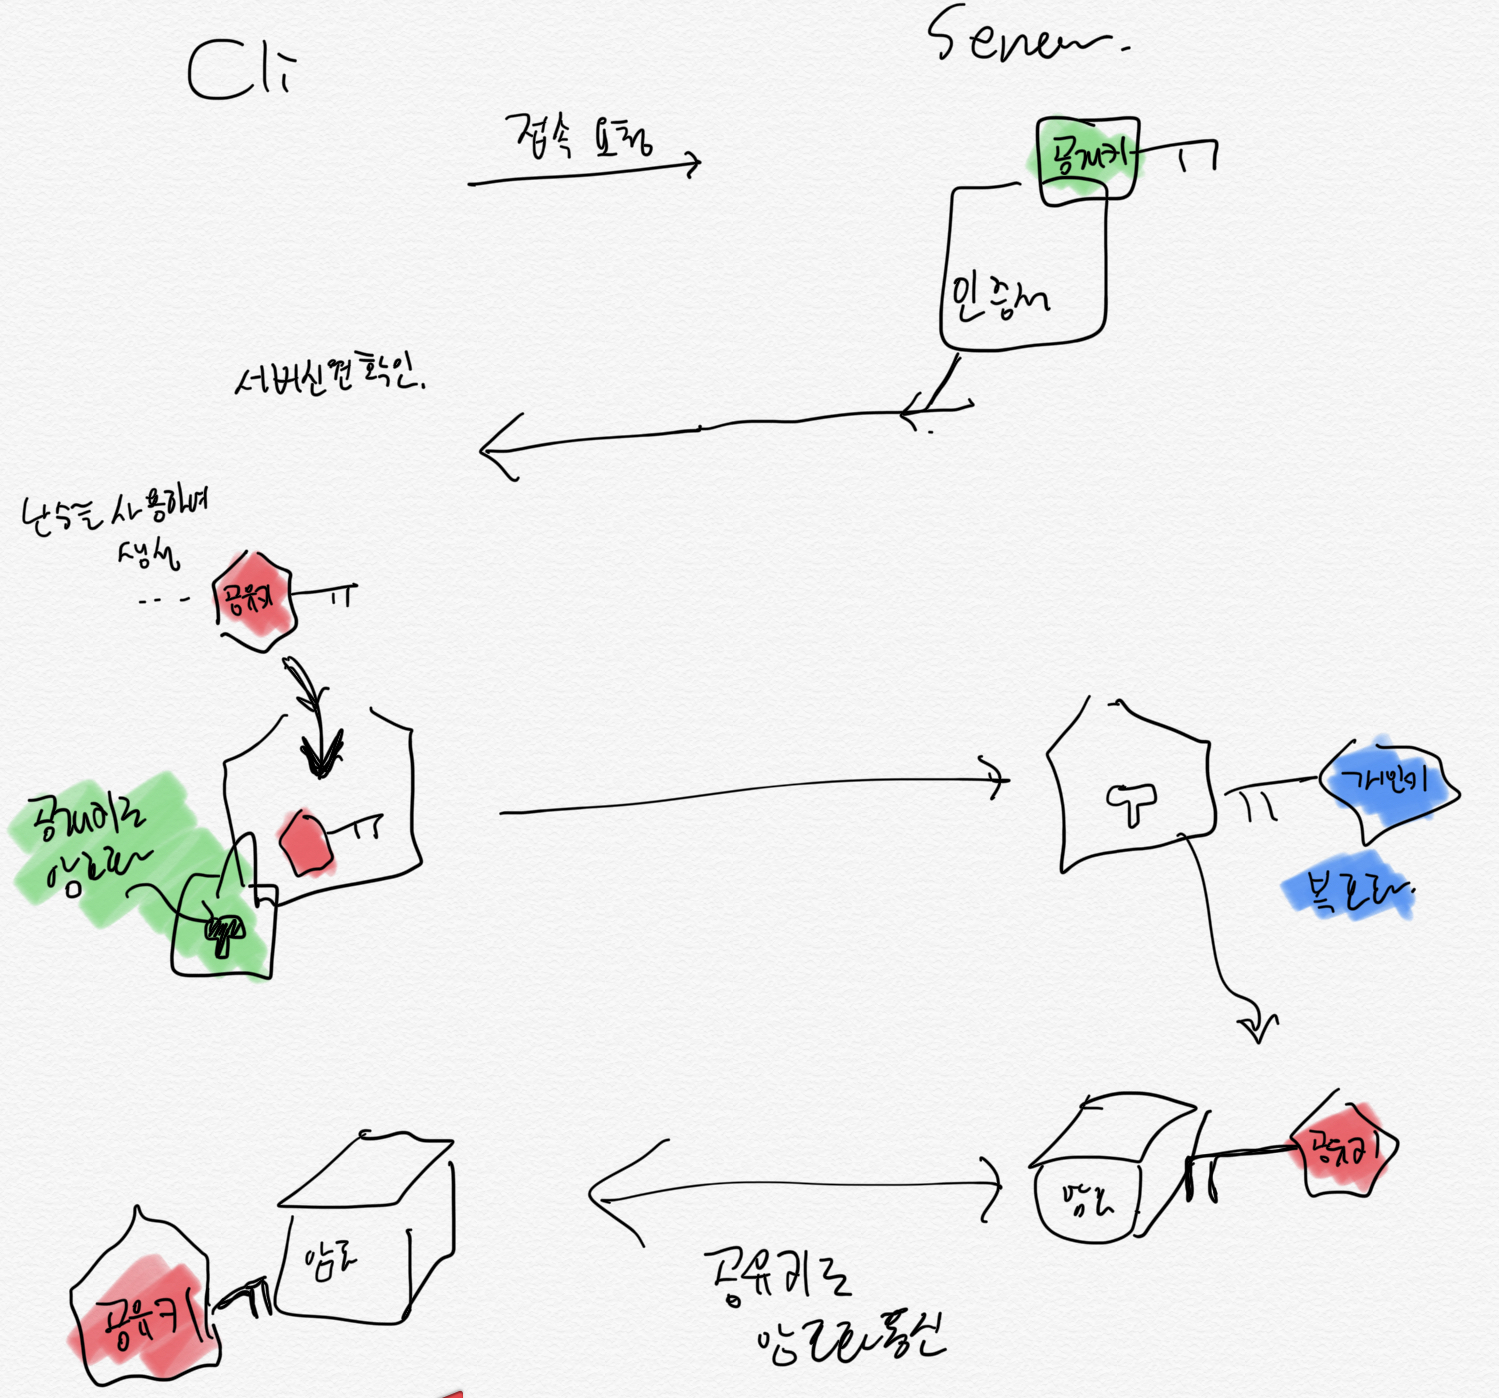 Cli
Server.
접속 요청
공개키
인증서
서버신원 확인.
난수를 사용하여
생성
공유키
공개키로
암호화
개인키
복호화.
공유키
암호
암호
공유키
공유키로
암호화 통신